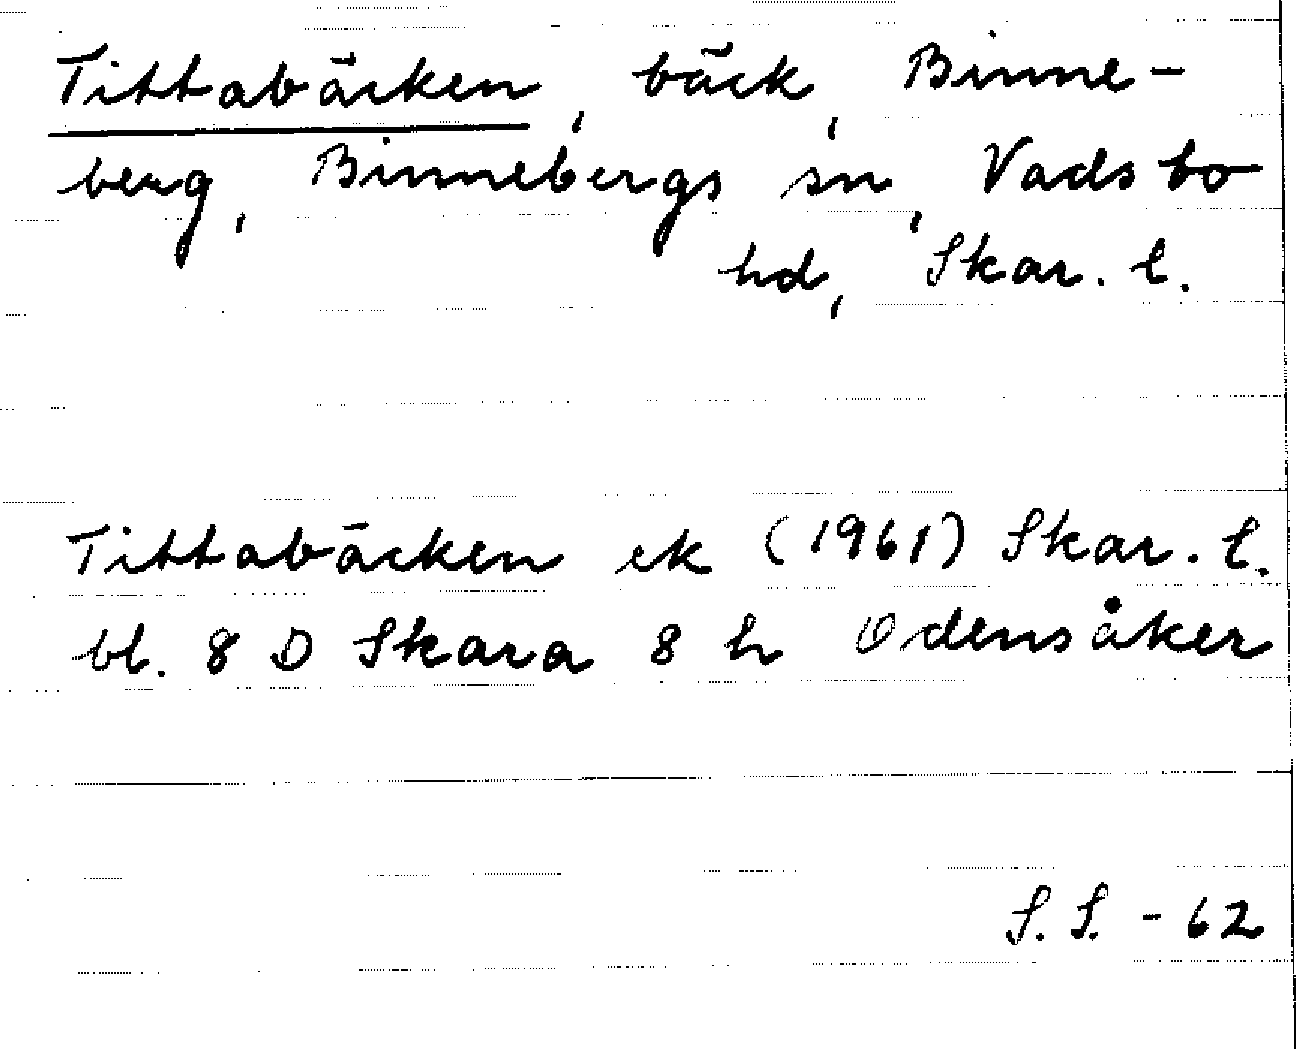 Tittabäcken, bäck, Binne-
berg, Binnebergs sn, Vadsbo
hd, Skar. l.
Tittabäcken ek (1961) Skar. l.
bl. 8 D Skara 8 h Odensåker
S. S. - 62